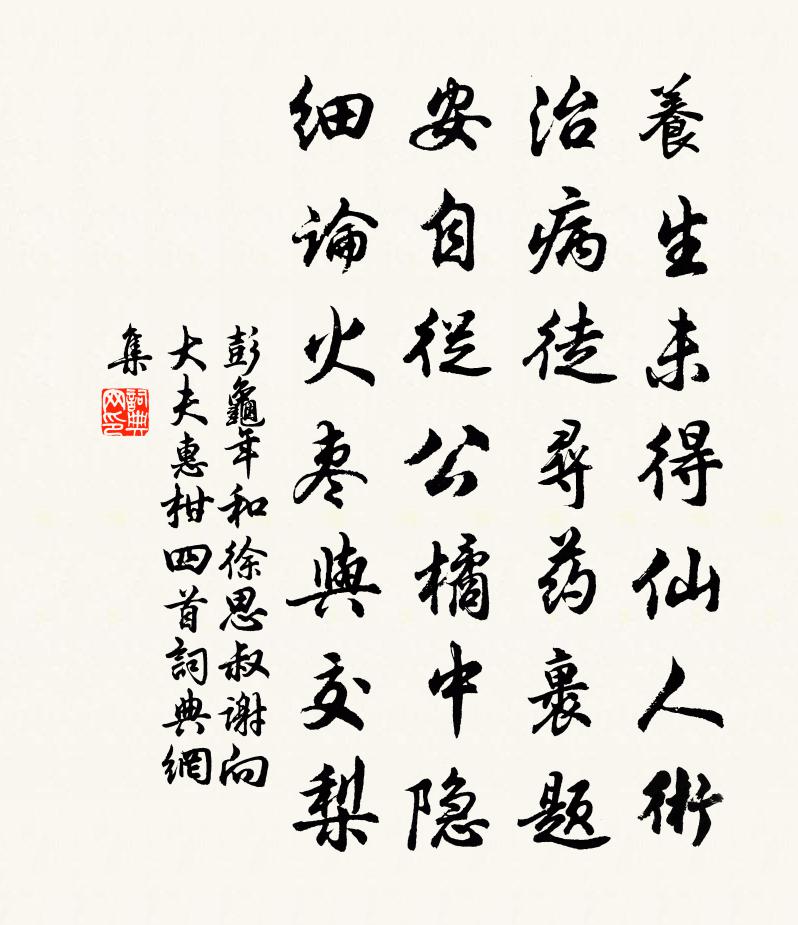 養生未得仙人術
治病徒尋药裹题
安自從公橘中隐
細論火枣與交梨
彭龜年和徐思叔谢向
大夫惠柑四首詞典網
集
詞典
网印